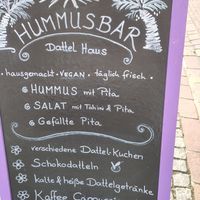 HUMMUSBAR
Dattel Haus
• hausgemacht • VEGAN • täglich frisch •
HUMMUS mit Pita
SALAT mit Tahini & Pita
Gefüllte Pita
verschiedene Dattel-Kuchen
Schokodatteln
kalte & heiße Dattelgetränke
Kaffee Cappuccino